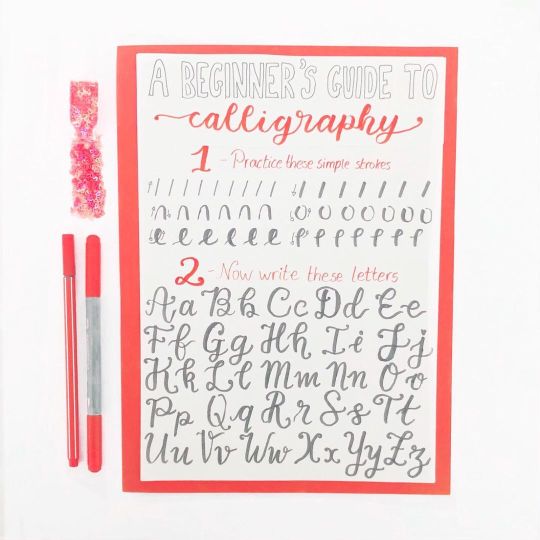 A BEGINNER'S GUIDE TO
calligraphy
1 - Practice these simple strokes
2 - Now write these letters
Aa Bb Cc Dd Ee
Ff Gg Hh Ii Jj
Kk Ll Mm Nn Oo
Pp Qq Rr Ss Tt
Uu Vv Ww Xx Yy Zz